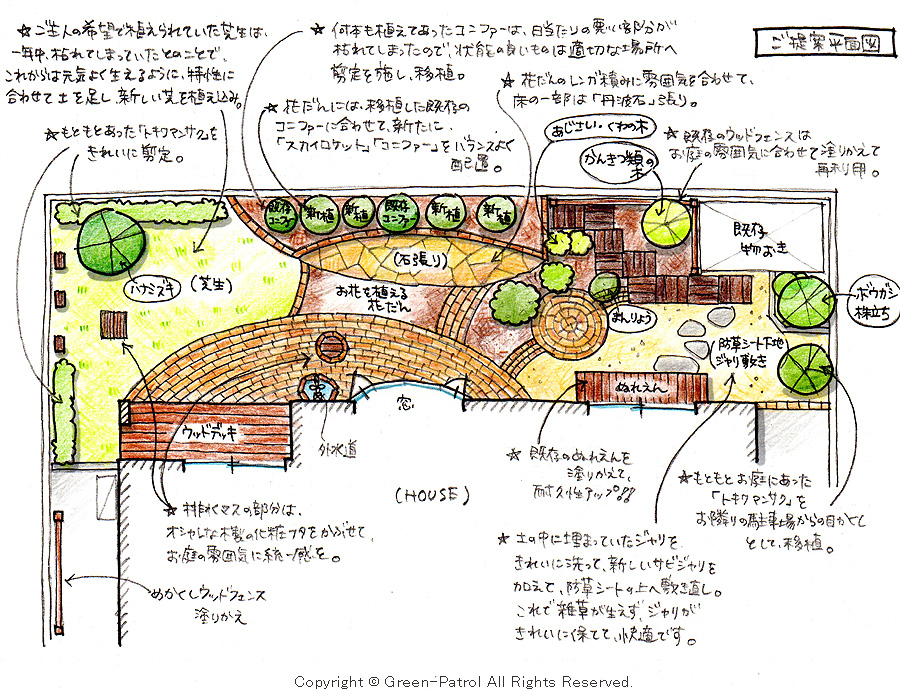 ご提案平面図
☆ご主人の希望で植えられていた芝生は、
一年中、枯れてしまっていたとのことで、
これからは元気よく生えるように、特性に
合わせて土を足し、新しい芝を植え込み。
☆もともとあった「トキワマンサク」を
きれいに剪定。
☆何本も植えてあったコニファーは、日当たりの悪い部分が
枯れてしまったので、状態の良いものは適切な場所へ
剪定を施し、移植。
☆花だんには、移植した既存の
コニファーに合わせて、新たに、
「スカイロケット」「コニファー」をバランスよく
配置。
☆花だんのレンガ積みに雰囲気を合わせて、
床の一部は「丹波石」張り。
あじさい・くわの木
かんきつ類の
木
☆既存のウッドフェンスは
お庭の雰囲気に合わせて塗りかえて
再利用。
既存
コニファー
新植
新植
既存
コニファー
新植
新植
既存
物おき
(石張り)
ハナミズキ
(芝生)
お花を植える
花だん
まんりょう
ボウガシ
株立ち
(防草シート下地)
ジャリ敷き
ぬれえん
ウッドデッキ
外水道
窓
(HOUSE)
☆既存のぬれえんを
塗りかえて、
耐久性アップ!!
☆もともとお庭にあった
「トキワマンサク」を
お隣りの駐車場からの目かくし
として、移植。
☆排水マスの部分は、
オシャレな木製の化粧フタをかぶせて、
お庭の雰囲気に統一感を。
☆土の中に埋まっていたジャリを
きれいに洗って、新しいサビジャリを
加えて、防草シートの上へ敷き直し。
これで雑草が生えず、ジャリが
きれいに保てて、快適です。
めかくしウッドフェンス
塗りかえ
Copyright © Green-Patrol All Rights Reserved.